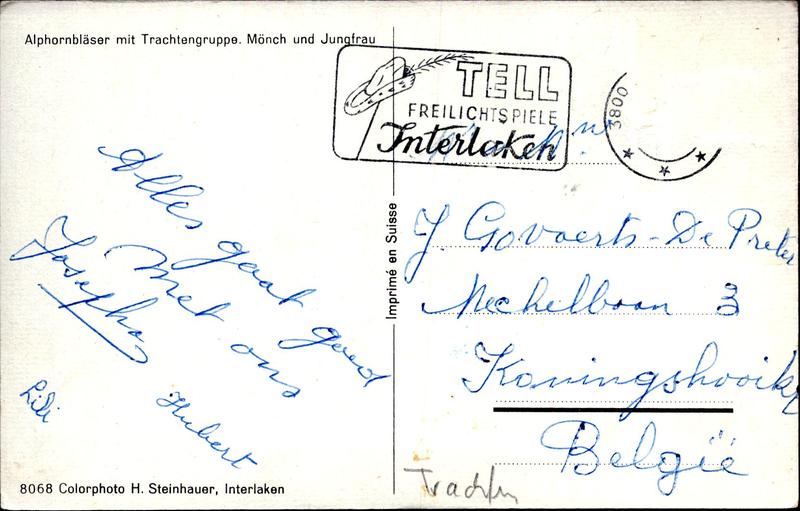 Alphornbläser mit Trachtengruppe. Mönch und Jungfrau
TELL
FREILICHTSPIELE
Interlaken
3800
Alles gaat goed
Met ons
Josepha
Lili
Hubert
Imprimé en Suisse
J. Govaerts-De Preter
Mechelbaan 3
Koningshooikt
België
8068 Colorphoto H. Steinhauer, Interlaken